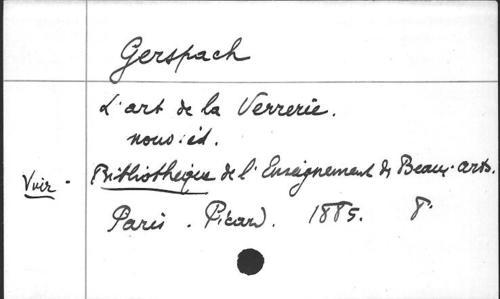 Gerspach
L'art de la Verrerie.
nouv: éd.
Voir - Bibliothèque de l'Enseignement des Beaux-arts.
Paris. Picard. 1885. 8°